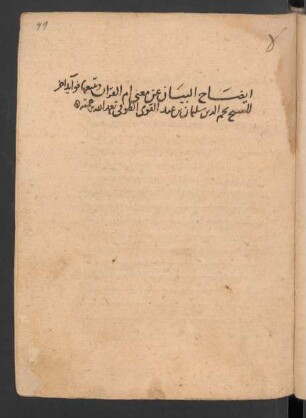 99
ايضاح البيان عن معنى ام القران وتتبعها فوايد اخر
للشيخ نجم الدين سليمان بن عبد القوى الطوفى تغمد الله برحمته